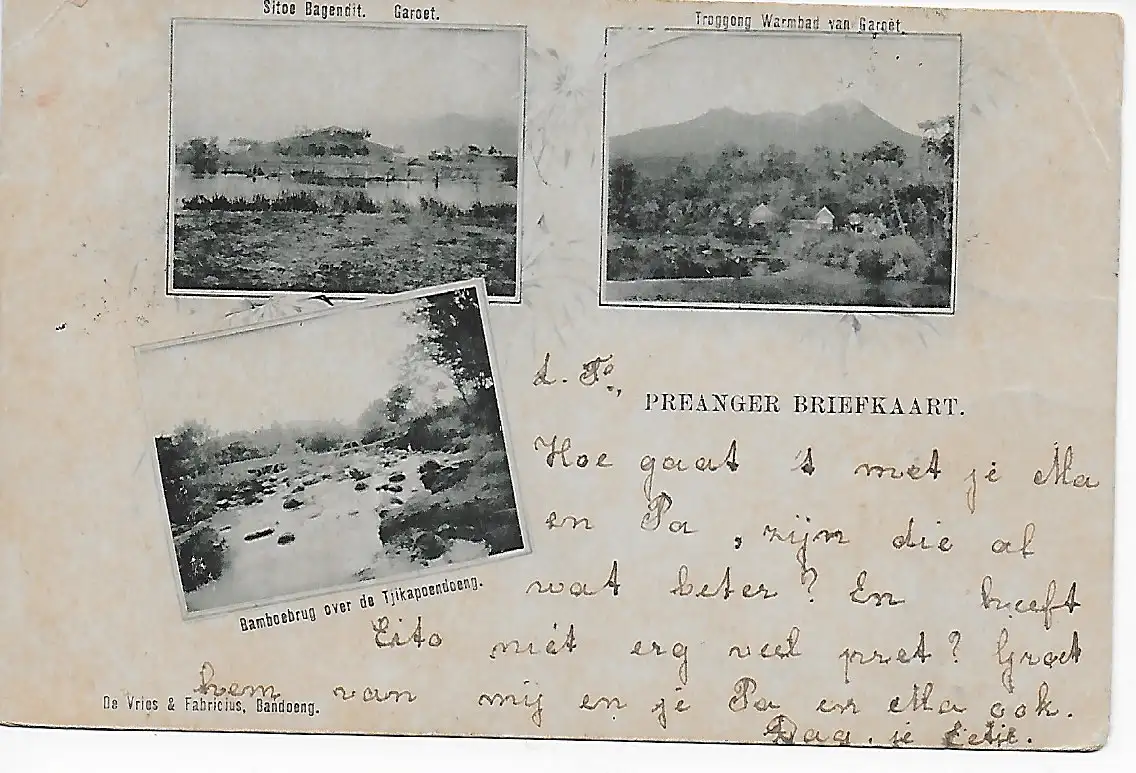 Sitoe Bagendit. Garoet.
Troggong Warmbad van Garoet.
Bamboebrug over de Tjikapoendoeng.
PREANGER BRIEFKAART.
Hoe gaat 't met je Ma
en Pa, zijn die al
wat beter? En heeft
Eito niét erg veel pret? Groet
hem van mij en je Pa en Ma ook.
Dag. je
De Vries & Fabricius, Bandoeng.